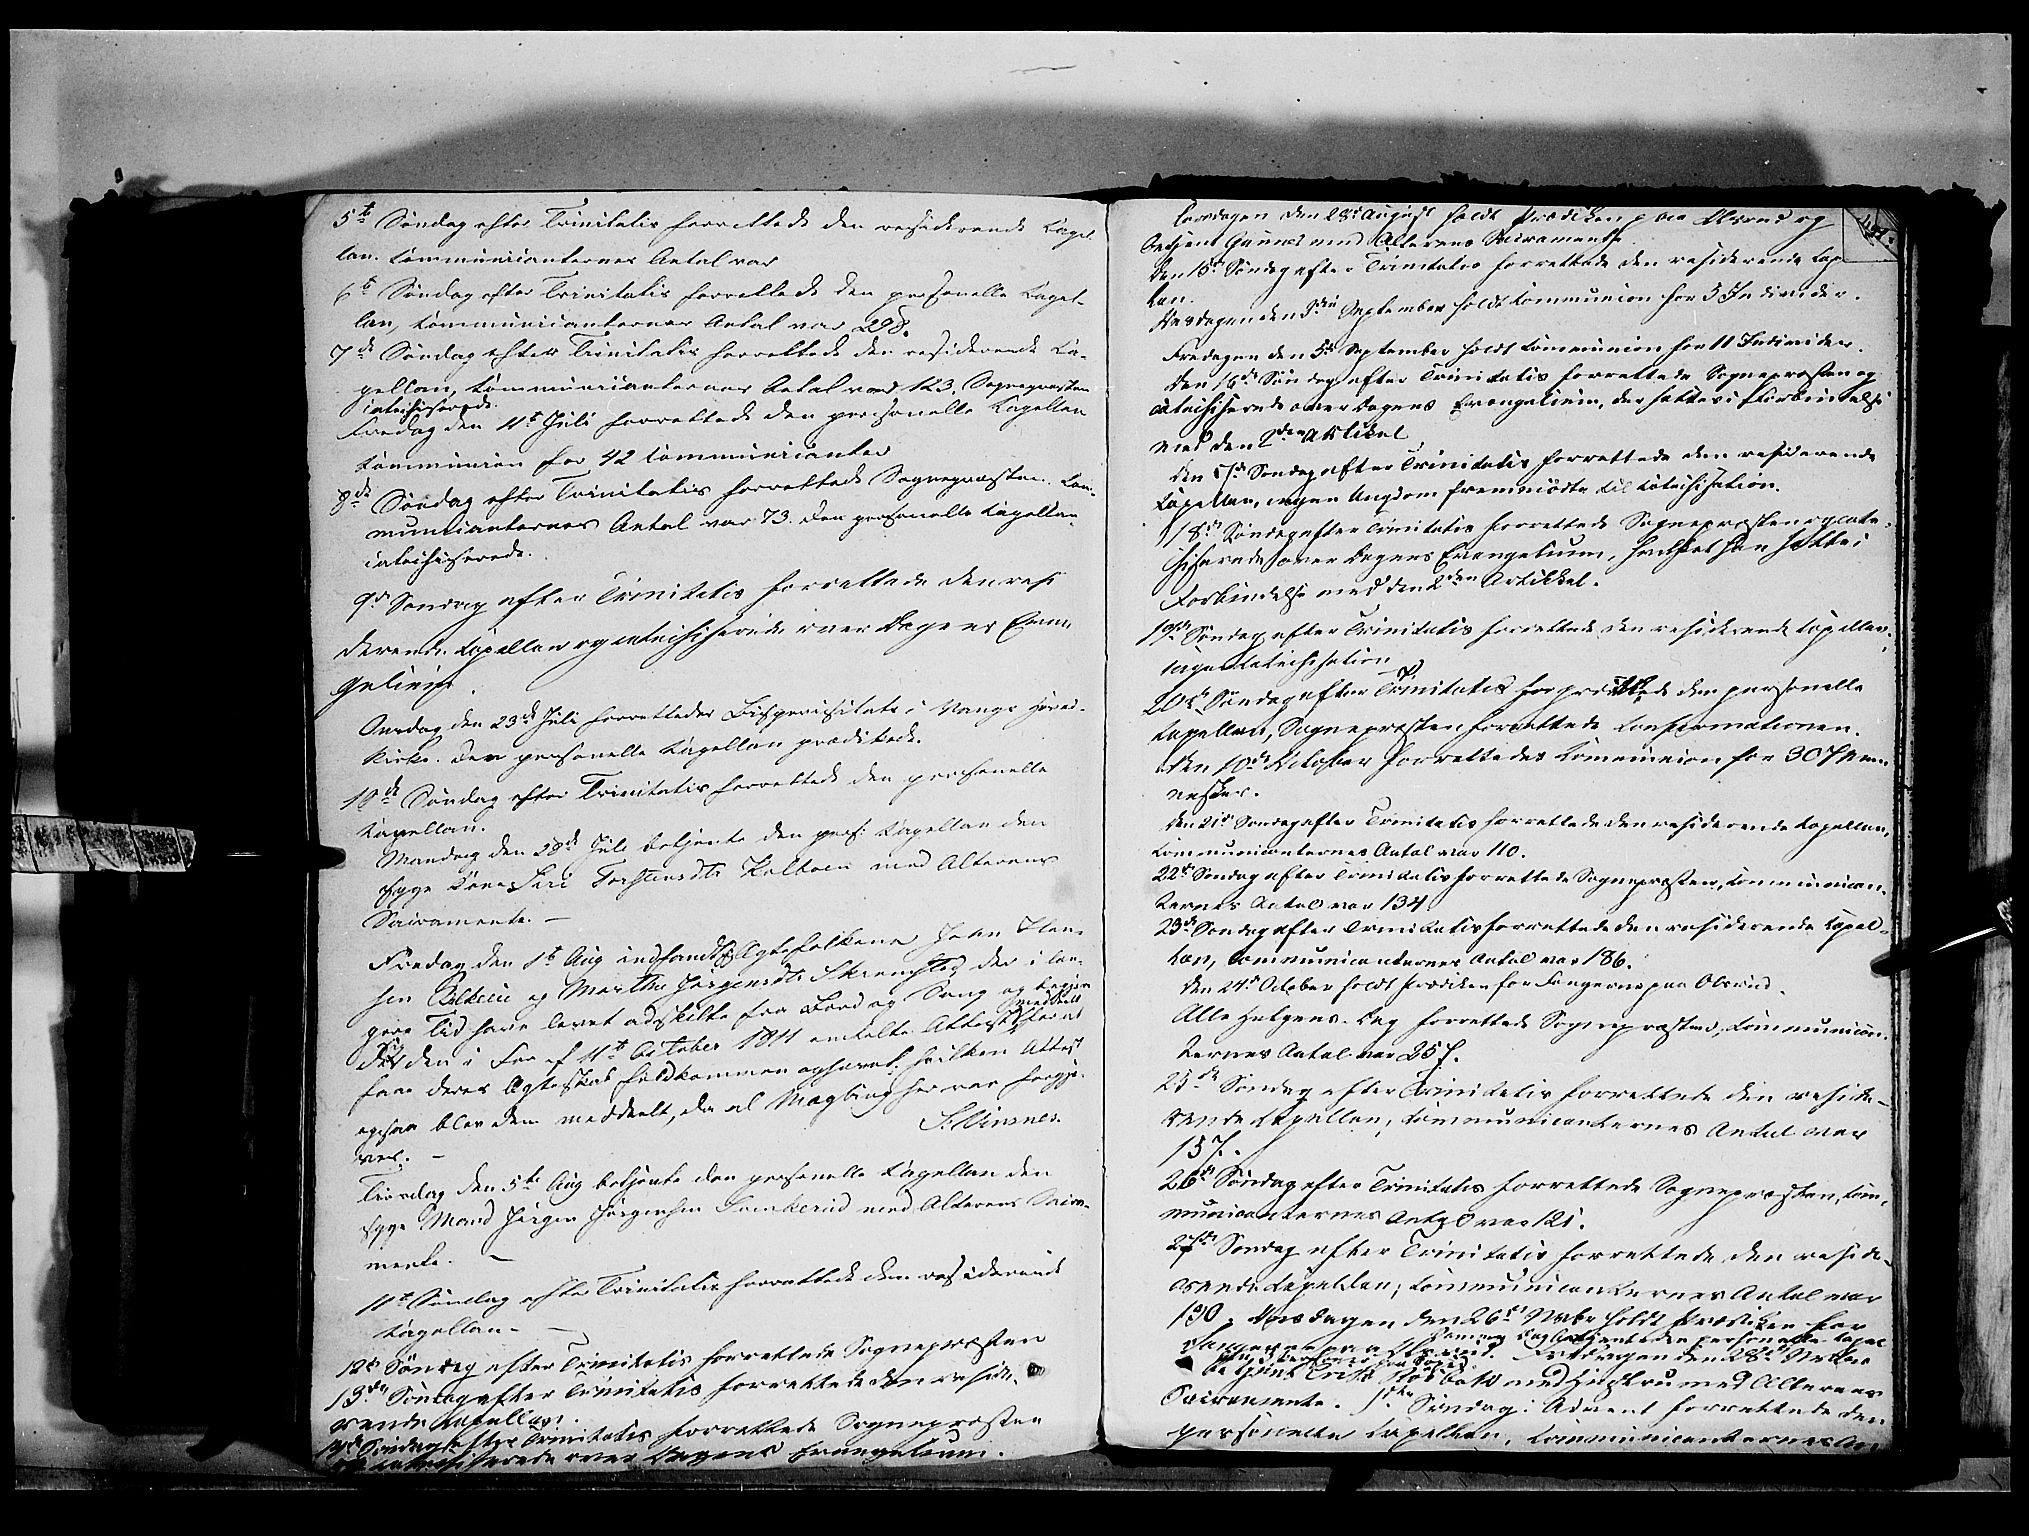 5te Søndag efter Trinitatis forrettede den residerende Capel-
lan. Communicanternes Antal var
6te Søndag efter Trinitatis forrettede den personelle Capel-
lan, Communicanternes Antal var 298.
7de Søndag efter Trinitatis forrettede den residerende Ca-
pellan, Communicanternes Antal var 123. Sognepræsten
catechiserede.
Fredag den 11te Juli forrettede den personelle Capellan
Communion for 42 Communicanter
8de Søndag efter Trinitatis forrettede Sognepræsten. Com-
municanternes Antal var 73. Den personelle Capellan
catechiserede.
9de Søndag efter Trinitatis forrettede den resi
derende Capellan og catechiserede over Dagens Evan
gelium.
Onsdag den 23de Juli forrettedes Bispevisitats i Vangs Hoved-
kirke. Den personelle Capellan prædikede.
10de Søndag efter Trinitatis forrettede den personelle
Capellan.
Mandag den 28de Juli betjente den pers: Capellan den
syge Kone Siri Torstensdtr med Alterens
Sacramente. —
Fredag den 1te Aug indfandt Ægtefolkene Johan Han-
sen og Marthe Jørgensdtr Skramstad, der i læn-
gere Tid have levet adskilte fra Bord og Seng og begjere
den i For af 11te October 1811 Attest for at
faae deres Ægteskab fuldkommen ophævet, hvilken Attest
ogsaa blev dem meddeelt, da al Mægling her var forgje-
ves. — S. Vinsnes.
Tirsdag den 5te Aug betjente den personelle Capellan den
syge Mand Jørgen Jørgensen med Alterens Sacra-
mente. —
11te Søndag efter Trinitatis forrettede den residerende
Capellan. —
12te Søndag efter Trinitatis forrettede Sognepræsten
13de Søndag efter Trinitatis forrettede den reside-
rende Capellan.
14de Søndag efter Trinitatis forrettede Sognepræsten
og catechiserede over Dagens Evangelium.
Torsdagen den 28de August holdt Prædiken paa Olsrud og
betjent Gunner med Alterens Sacramente.
Den 15de Søndag efter Trinitatis forrettede den residerende Cap
lan.
Onsdagen den 3die September holdt Communion for 5 Individer.
Fredagen den 5te September holdt Communion for 11 Individer.
Den 16de Søndag efter Trinitatis forrettede Sognepræsten og
catechiserede over Dagens Evangelium, der sattes i Forbindelse
med den 2den Artikel
Den 17de Søndag efter Trinitatis forrettede den residerende
Capellan, ingen Ungdom fremmødte til Catechisation.
18de Søndag efter Trinitatis forrettede Sognepræsten og cate-
chiserede over Dagens Evangelium, hvilket han satte i
Forbindelse med den 2den Artikkel.
19de Søndag efter Trinitatis forrettede den residerende Capellan,
ingen Catechisation
20de Søndag efter Trinitatis forrettede den personelle
Capellan, Sognepræsten forrettede Confirmationen.
Den 10de October forrettedes Communion for 307 Men-
nesker.
Den 21de Søndag efter Trinitatis forrettede den residerende Capellan,
Communicanternes Antal var 110.
22de Søndag efter Trinitatis forrettede Sognepræsten, Communican-
ternes Antal var 134.
23de Søndag efter Trinitatis forrettede den residerende Capel-
lan, Communicanternes Antal var 186.
Den 24de October holdt Prædiken for Fangerne paa Olsrud.
Alle Helgens-Dag forrettede Sognepræsten, Communican-
ternes Antal var 257.
25de Søndag efter Trinitatis forrettede den reside-
rende Capellan, Communicanternes Antal var
157.
26de Søndag efter Trinitatis forrettede Sognepræsten, Com-
municanternes Antal var 121.
27de Søndag efter Trinitatis forrettede den reside-
rende Capellan, Communicanternes Antal var
190. Onsdagen den 26de Novbr holdt Prædiken for
Fangerne paa Olsrud. Samme Dag betjente den personelle Capel
Fredagen den 28de Novbr
betjent med Hustru med Alterens
Sacramente. 1ste Søndag i Advent forrettede den
personelle Capellan, Communicanternes An